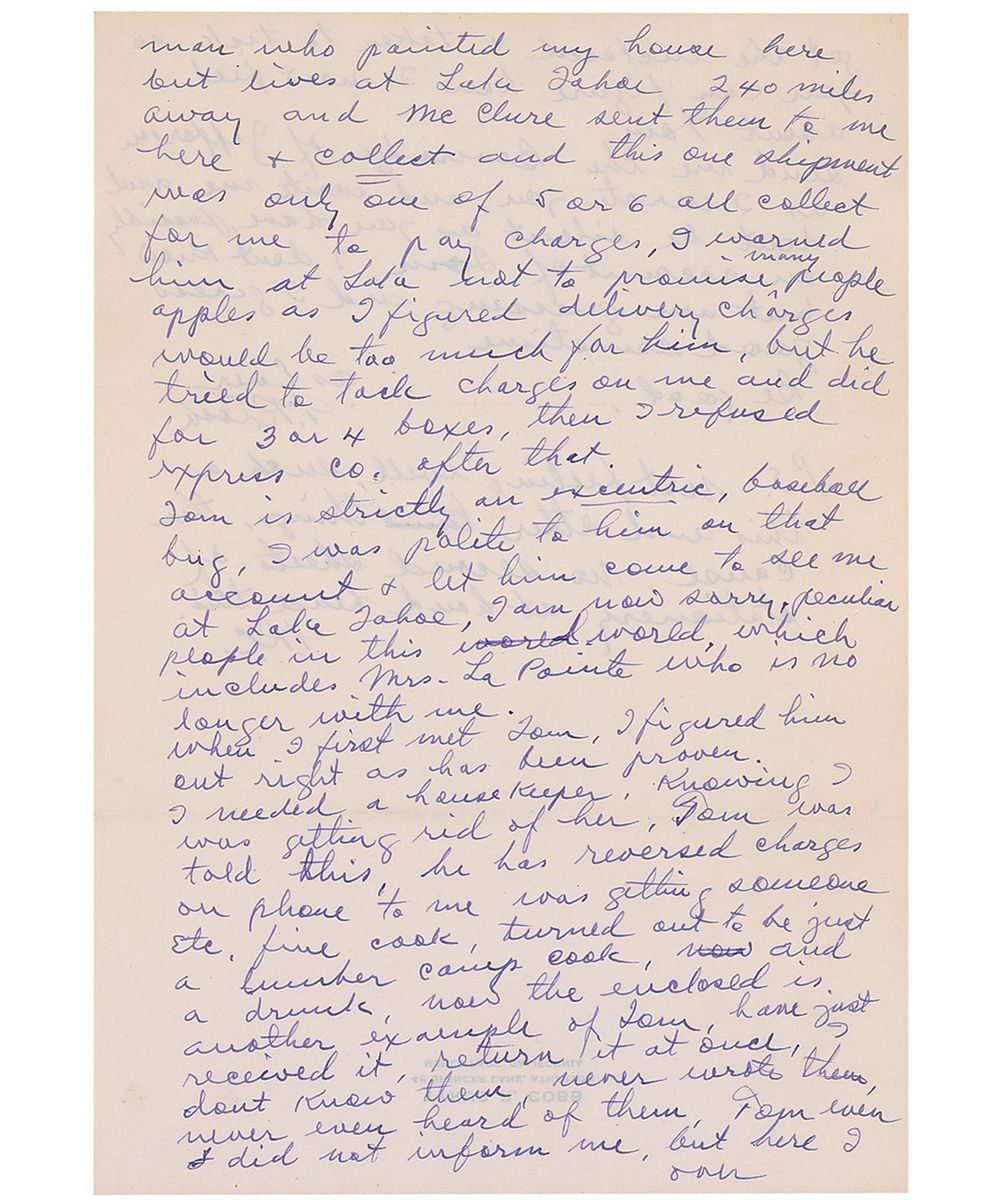 man who painted my house here
but lives at Lake Tahoe 240 miles
away and McClure sent them to me
here & collect and this one shipment
was only one of 5 or 6 all collect
for me to pay charges, I warned
him at Lake not to promise many people
apples as I figured delivery charges
would be too much for him, but he
tried to tack charges on me and did
for 3 or 4 boxes, then I refused
express co. after that.
Tom is strictly an excentric, baseball
bug, I was polite to him on that
account & let him come to see me
at Lake Tahoe, I am now sorry, peculiar
people in this world, which
includes Mrs. La Pointe who is no
longer with me.
when I first met Tom, I figured him
out right as has been proven.
I needed a house Keeper, Knowing I
was getting rid of her, Tom was
told this, he has reversed charges
on phone to me was getting someone
Etc. fine cook, turned out to be just
a lumber camp cook, now and
a drunk, now the enclosed is
another example of Tom, have just
received it, return it at once, I
dont Know them, never wrote them,
never even heard of them, Tom even
did not inform me, but here I
over